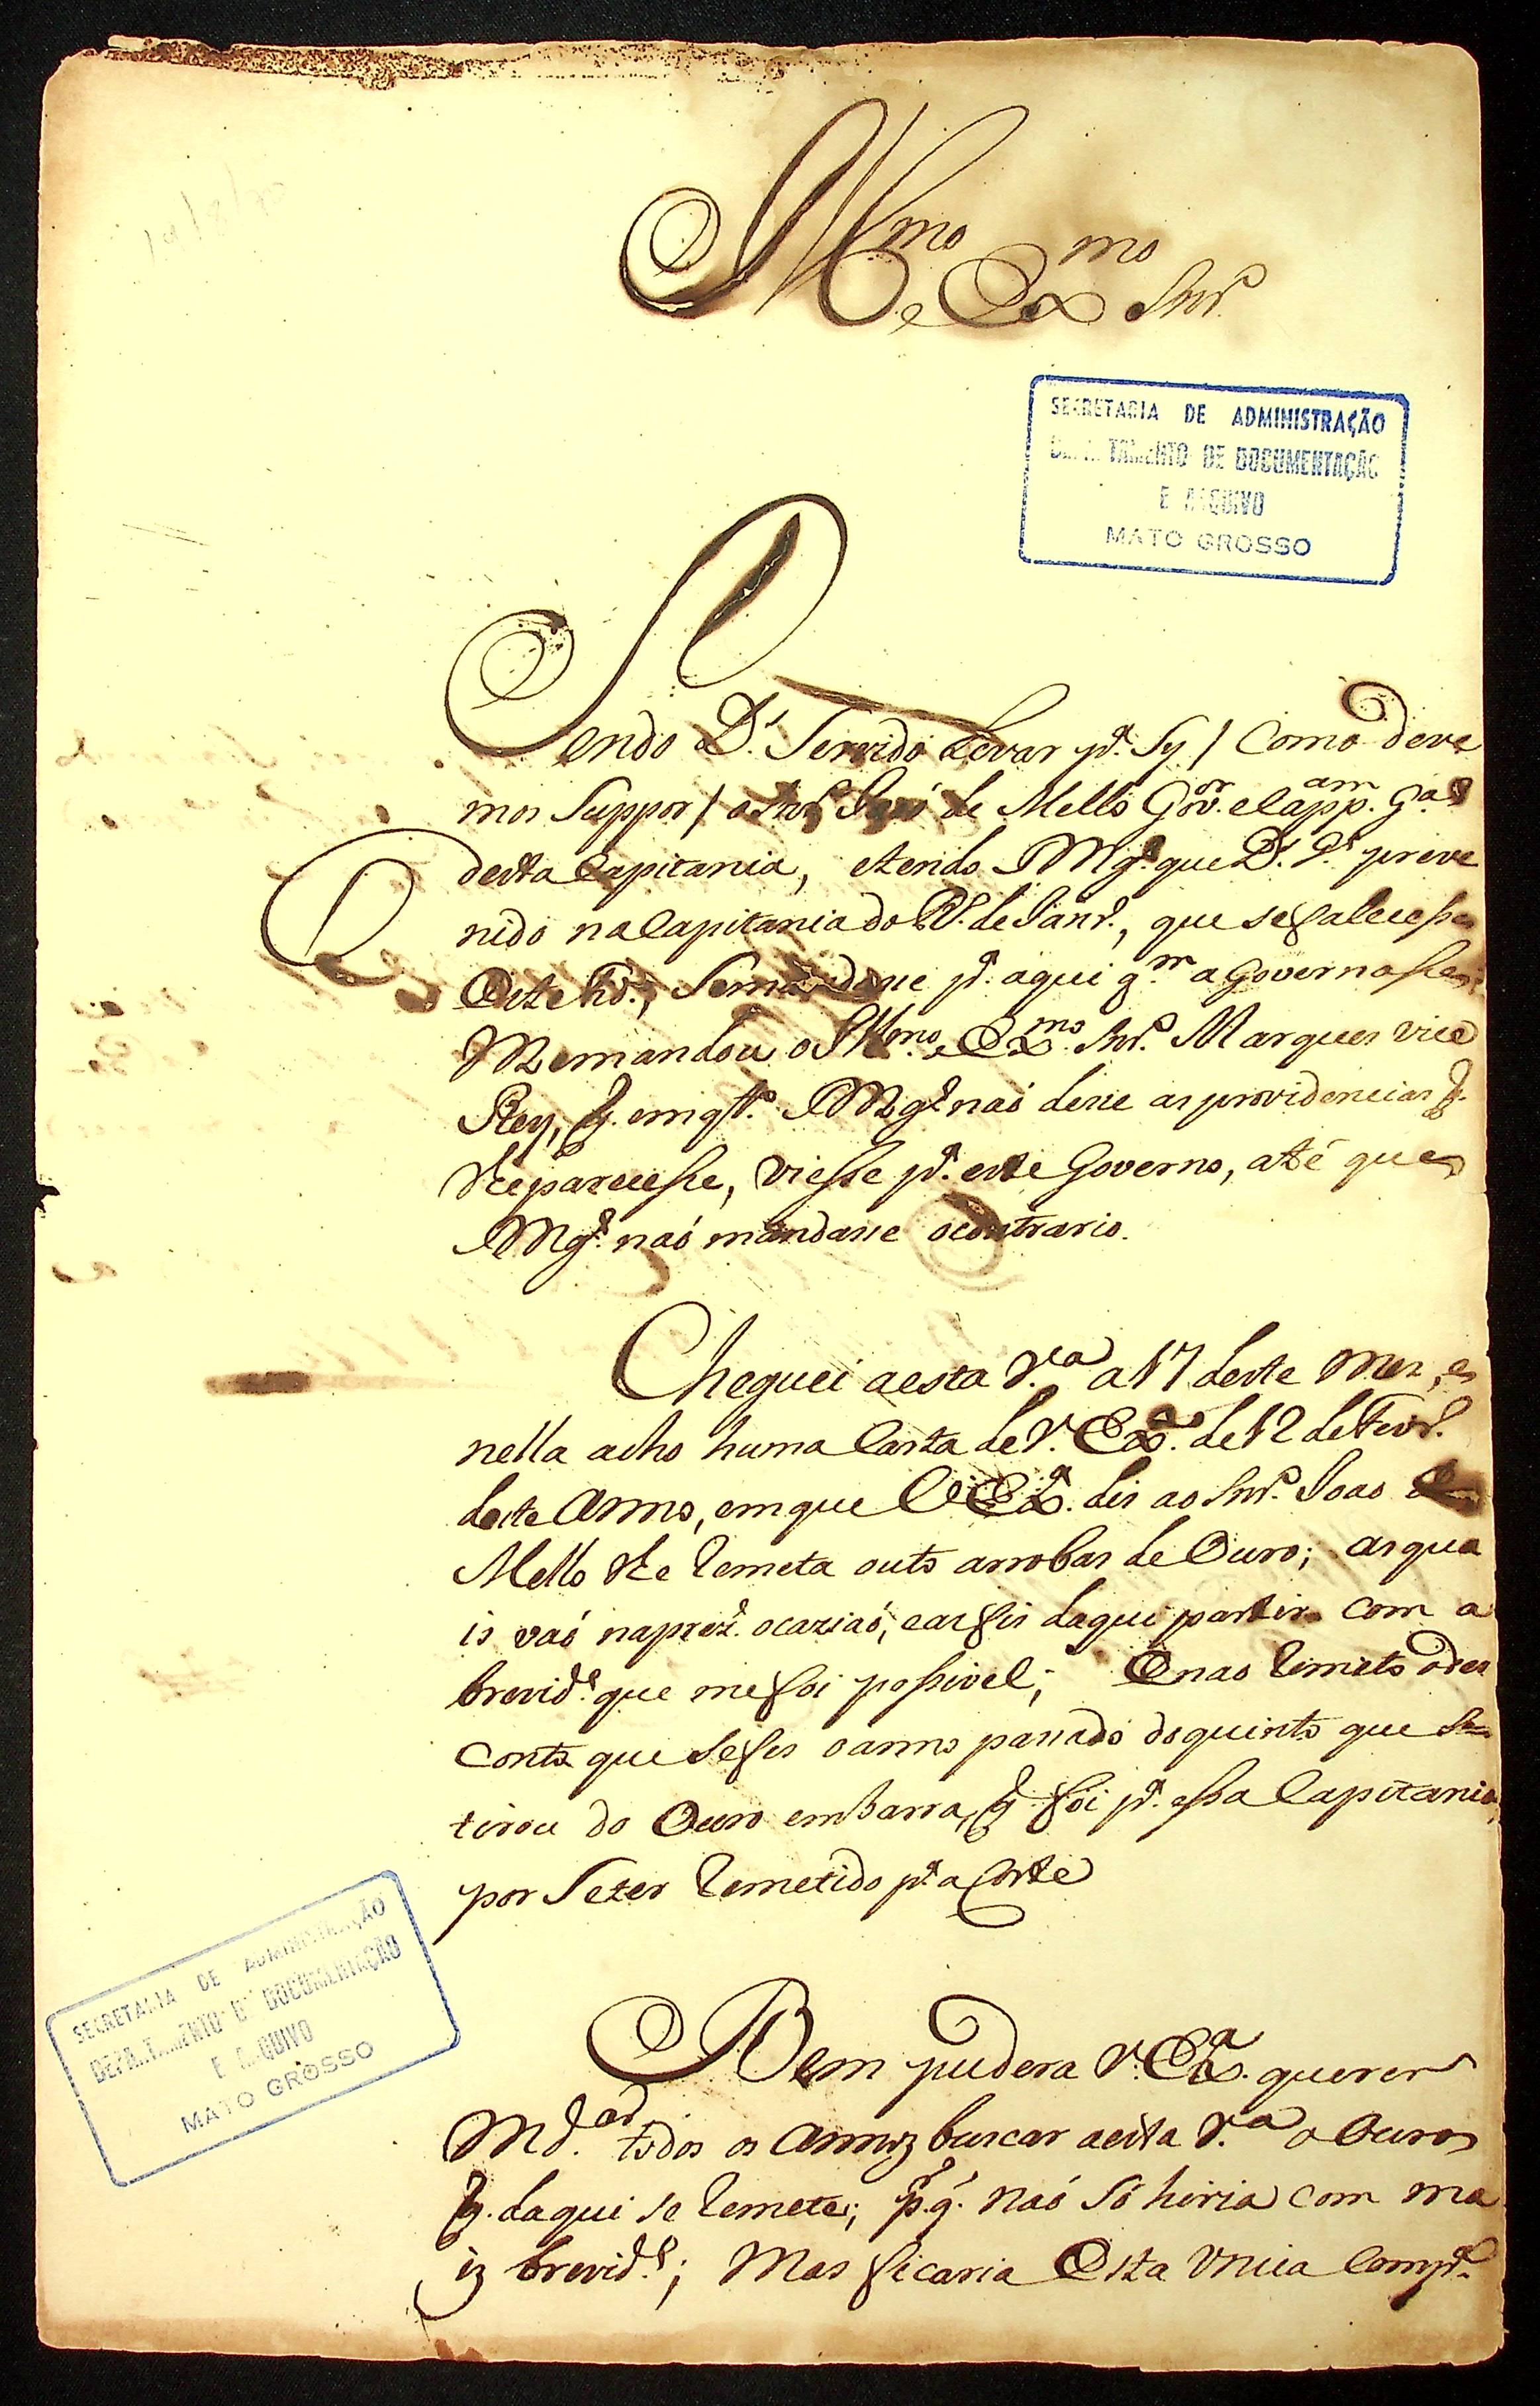 Ill.mo e Ex.mo Snr.
SECRETARIA DE ADMINISTRAÇÃO
DEPARTAMENTO DE DOCUMENTAÇÃO
E ARQUIVO
MATO GROSSO
Sendo D.s Servido Levar p.a Sy / Como deve
mos Suppor / o Snr. Joaõ de Mello Gov.or e Capp.am G.al
desta Capitania, e tendo S Mg.e que D.s G.e preve
nido na Capitania do R.o de Janr.o, que se falecesse
Este, Se mandasse p.a aqui q.m a Governasse;
Me mandou o Ill.mo e Ex.mo Snr. Marques Vice
Rey, q. em q.to S Mg.e naõ desse as providencias q.
lhe parecesse, viesse p.a este Governo, até que
S Mg.e naõ mandasse o contrario.
Cheguei a esta V.a a 17 deste Mes, e
nella acho huma Carta de V. Ex.a de 12 de Fevr.o
deste Anno, em que V Ex.a dis ao Snr. Joao de
Mello lhe Remeta outo arrobas de Ouro; as qua
is vaõ na prez.e ocaziaõ, e as fis daqui partir com a
brevid.e que me foi possivel; E nao Remeto o des
conto que se fes o anno passado do quinto que se
tirou do Ouro em barra, q. foi p.a essa Capitania,
por Se ter Remetido p.a a Corte
SECRETARIA DE ADMINISTRAÇÃO
DEPARTAMENTO DE DOCUMENTAÇÃO
E ARQUIVO
MATO GROSSO
Bem pudera V. Ex.a querer
Md.ar todos os Annos buscar a esta V.a o Ouro
q. daqui se Remete; p.r q. naõ Só hiria com ma
is brevid.e; Mas ficaria Esta Unica Comp.a